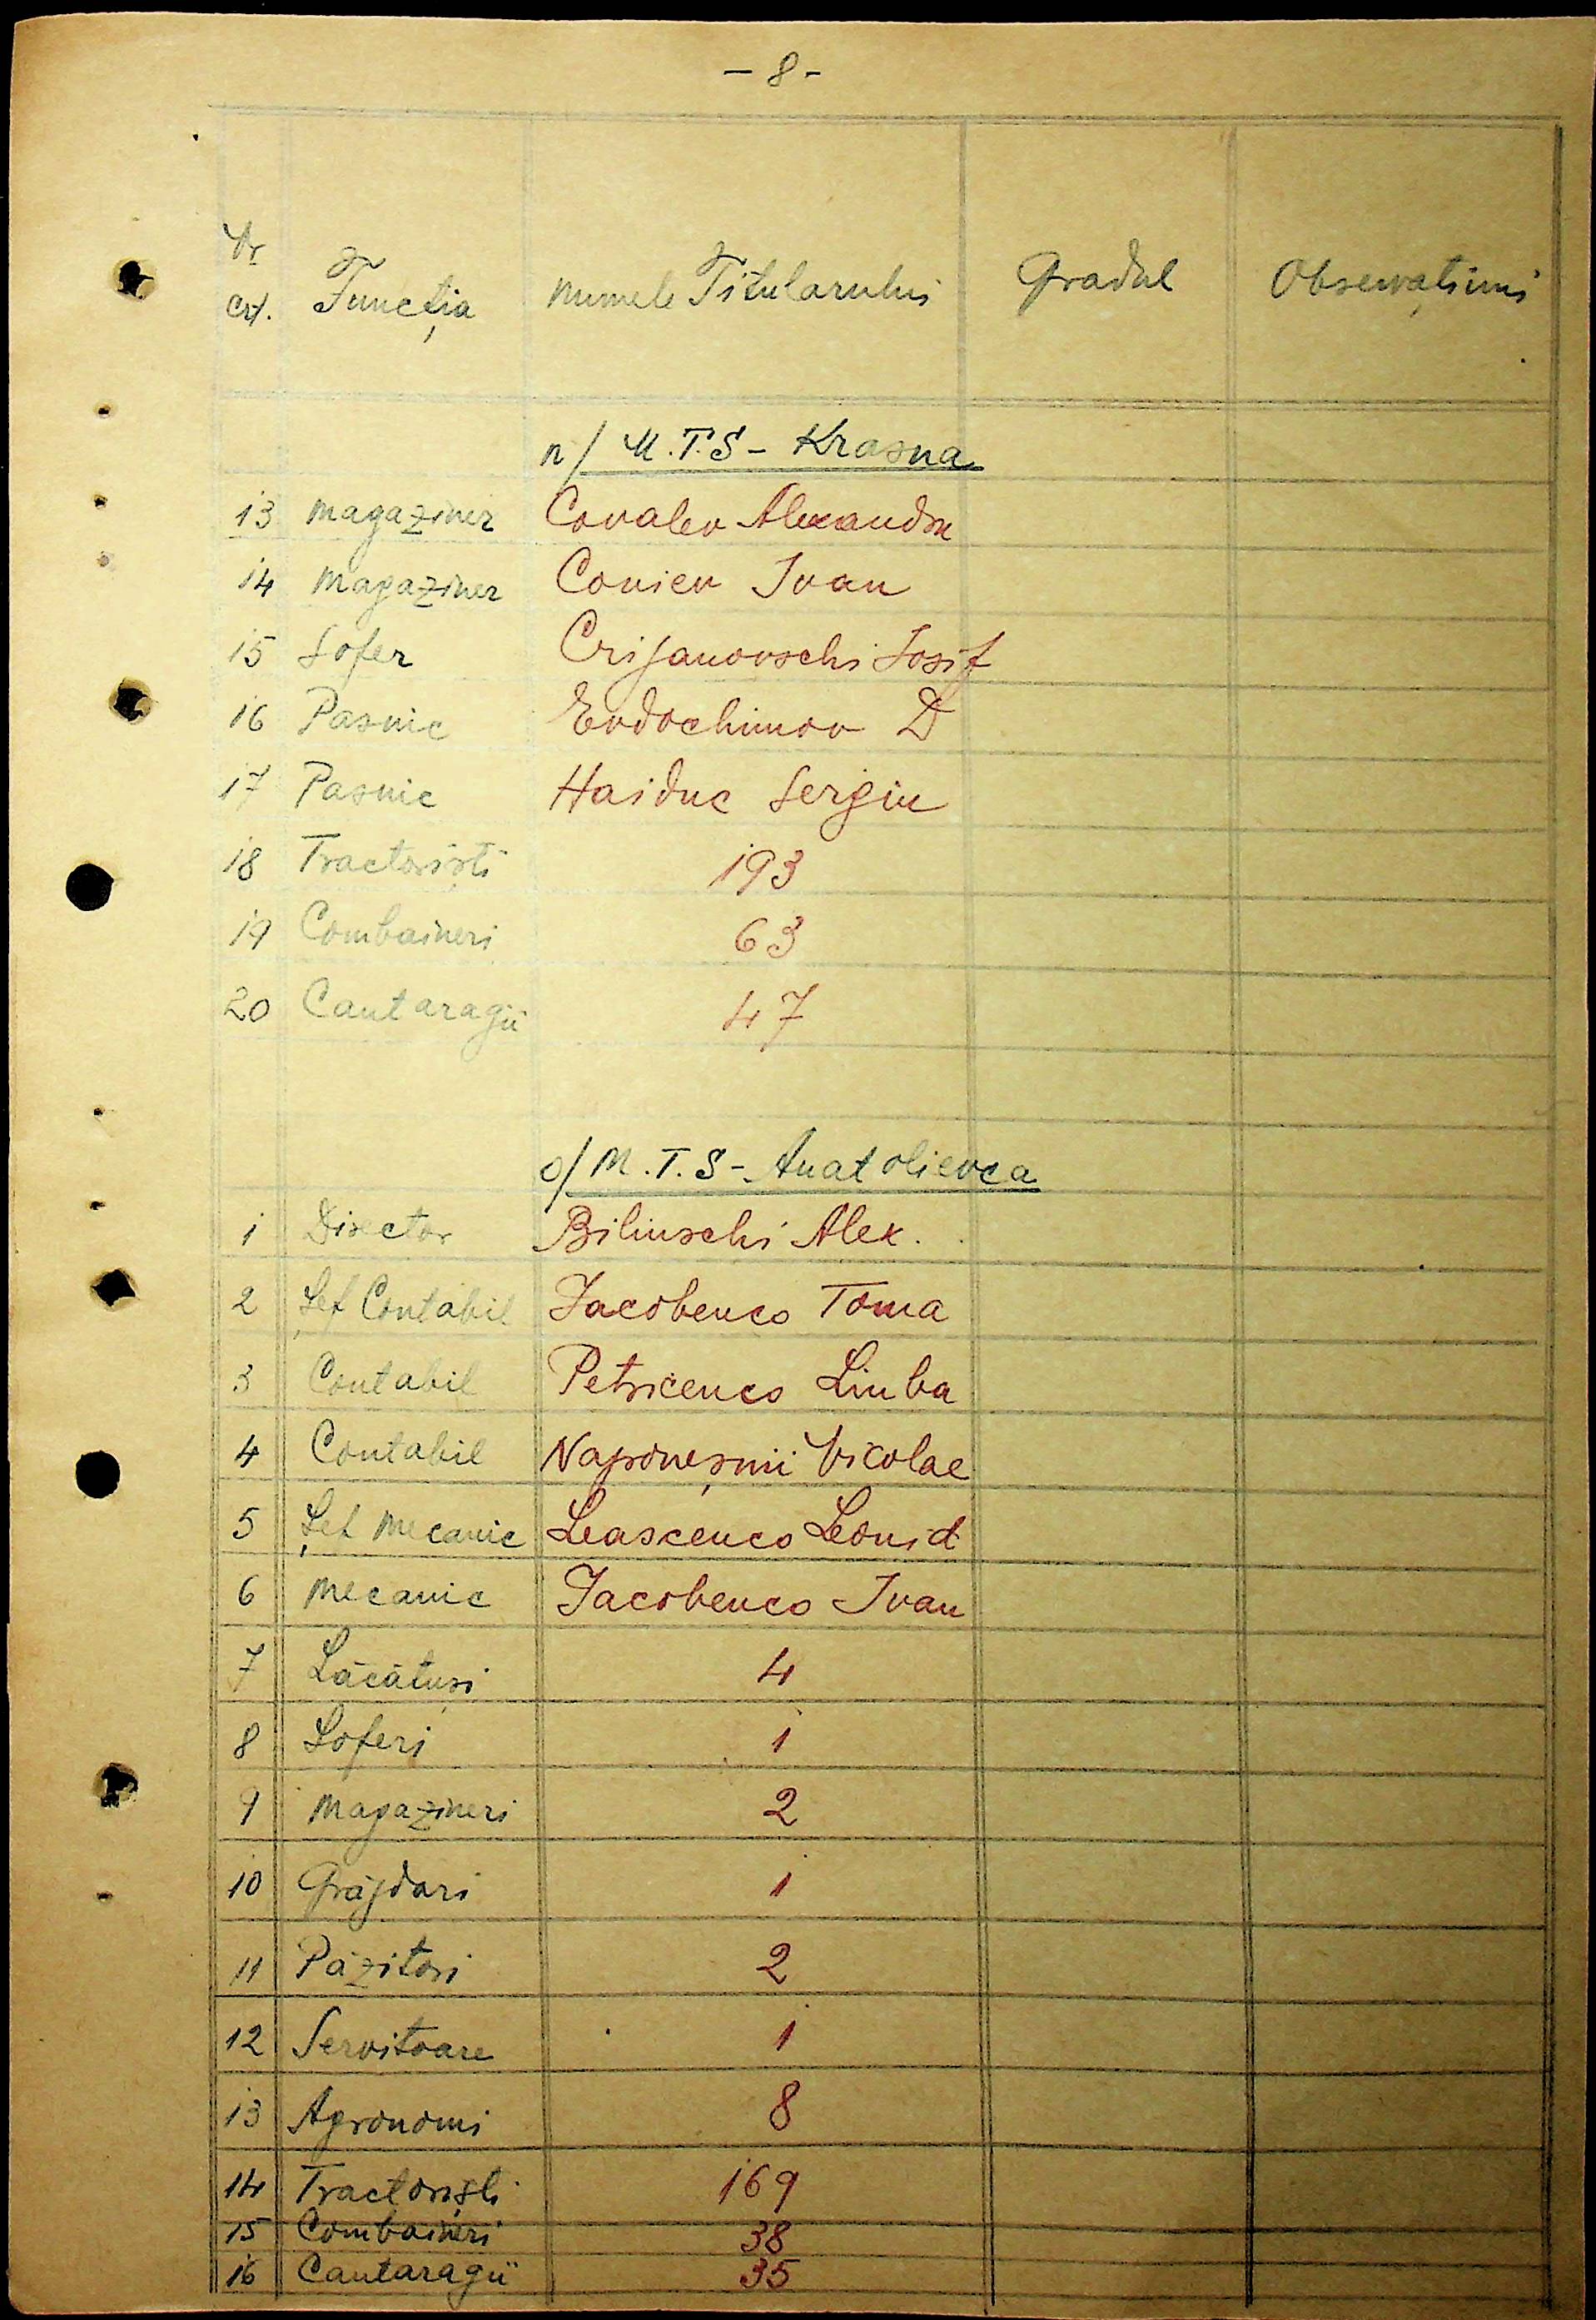 - 8 -
Nr
crt. Funcția numele Titularului Gradul Observațiuni
n/ M.T.S - Krasna
13 magaziner Covalev Alexandru
14 magaziner Coniev Ivan
15 Sofer Crijanovschi Iosif
16 Pasnic Evdochimov D
17 Pasnic Haiduc Sergiu
18 Tractoriști 193
19 Combaineri 63
20 Cantaragii 47
o/ M.T.S - Anatolievca
1 Director Bilinschi Alex.
2 Șef Contabil Iacobenco Toma
3 Contabil Petricenco Liuba
4 Contabil Nicolae
5 Șef mecanic Leascenco Leonid
6 mecanic Iacobenco Ivan
7 Lăcătuși 4
8 Soferi 1
9 magazineri 2
10 Grăjdari 1
11 Păzitori 2
12 Servitoare 1
13 Agronomi 8
14 Tractoriști 169
15 Combaineri 38
16 Cantaragii 35